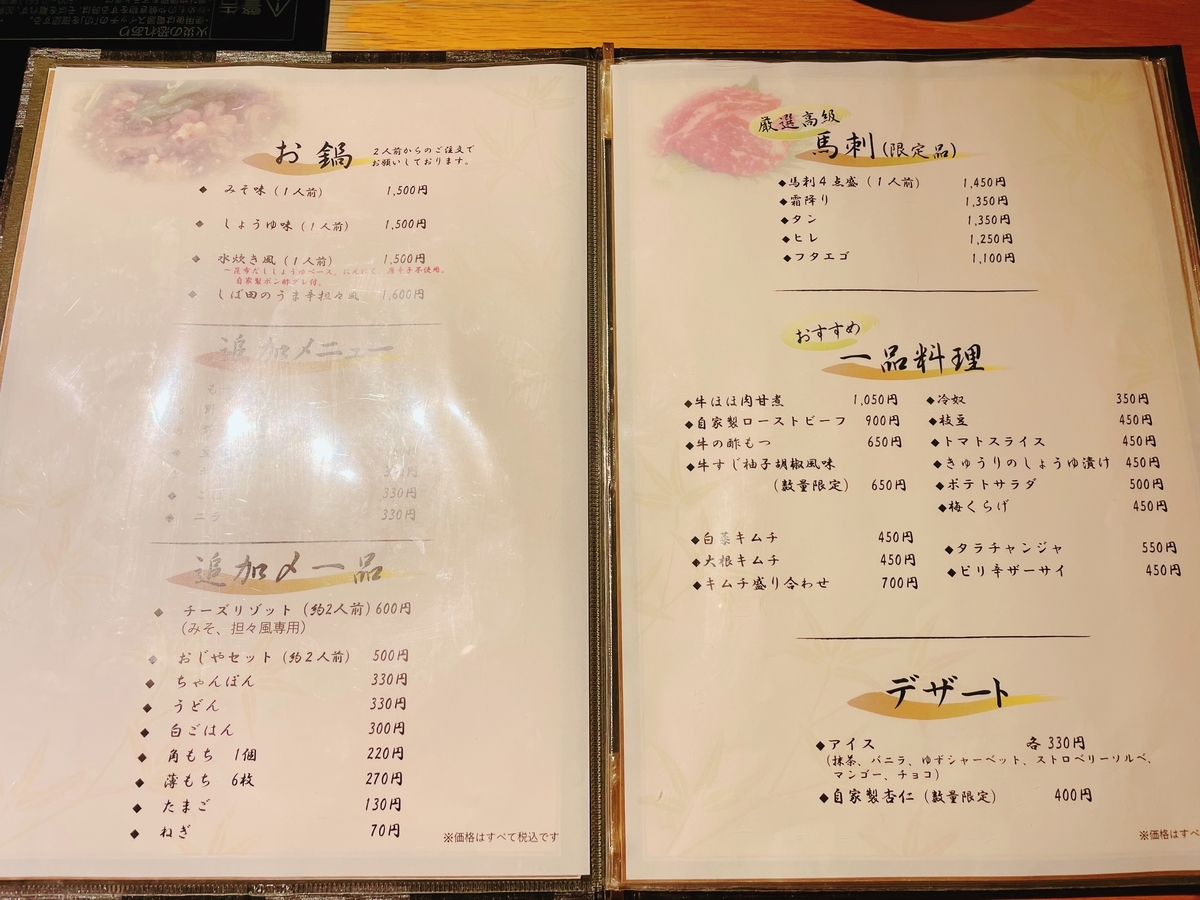 火災の恐れあり
お鍋
2人前からのご注文で
お願いしております。
◆ みそ味(1人前) 1,500円
◆ しょうゆ味(1人前) 1,500円
◆ 水炊き風(1人前) 1,500円
自家製ポン酢ダレ付。
◆ しば田のうま辛担々風 1,600円
追加メニュー
330円
◆ ニラ 330円
追加〆一品
◆ チーズリゾット(約2人前) 600円
(みそ、担々風専用)
◆ おじやセット(約2人前) 500円
◆ ちゃんぽん 330円
◆ うどん 330円
◆ 白ごはん 300円
◆ 角もち 1個 220円
◆ 薄もち 6枚 270円
◆ たまご 130円
◆ ねぎ 70円
※価格はすべて税込です
厳選高級
馬刺(限定品)
◆馬刺4点盛(1人前) 1,450円
◆霜降り 1,350円
◆タン 1,350円
◆ヒレ 1,250円
◆フタエゴ 1,100円
おすすめ
一品料理
◆牛ほほ肉甘煮 1,050円
◆自家製ローストビーフ 900円
◆牛の酢もつ 650円
◆牛すじ柚子胡椒風味
(数量限定) 650円
◆白菜キムチ 450円
◆大根キムチ 450円
◆キムチ盛り合わせ 700円
◆冷奴 350円
◆枝豆 450円
◆トマトスライス 450円
◆きゅうりのしょうゆ漬け 450円
◆ポテトサラダ 500円
◆梅くらげ 450円
◆タラチャンジャ 550円
◆ピリ辛ザーサイ 450円
デザート
◆アイス 各330円
(抹茶、バニラ、ゆずシャーベット、ストロベリーソルベ、
マンゴー、チョコ)
◆自家製杏仁(数量限定) 400円
※価格はすべ